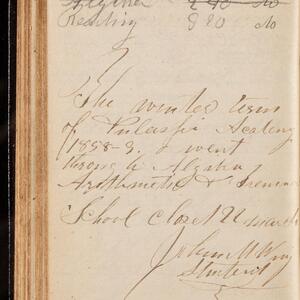 Algebra 2 90 No
Reading 3 80 No
The winter term
of Pulaski Academy
1858-9. I went
through Algebra
Arithmetic &
School closed 22 march
John M Wing
Student